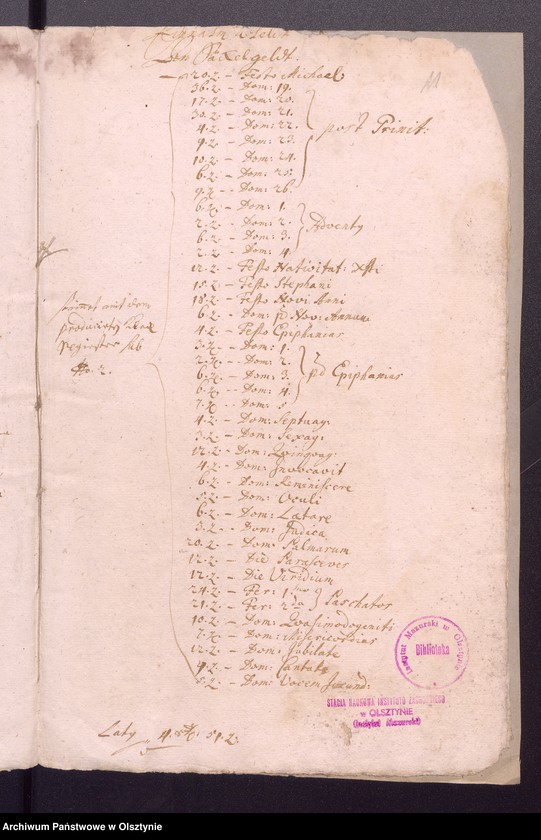 Von Säckelgeldt.
20.g. – Festo Michael
36.g. – Dom: 19.
17.g. – Dom: 20.
30.g. – Dom: 21.
4.g. – Dom: 22.
9.g. – Dom: 23.
post Trinit:
10.g. – Dom: 24.
6.g. – Dom: 25.
9.g. – Dom: 26.
6.g. – Dom: 1.
2.g. – Dom: 2.
Adventy
6.g. – Dom: 3.
2.g. – Dom: 4.
12.g. – Festo Nativitat: Xsti
15.g. – Festo Stephani
18.g. – Festo Novi Anni
6.g. – Dom: pd Nov: Annum
4.g. – Festo Epiphanias
3.g. – Dom: 1.
2.g. – Dom: 2.
6.g. – Dom: 3.
pd Epiphanias
6.g. – Dom: 4.
7.g. – Dom: 5
4.g. – Dom: Septuag:
3.g. – Dom: Sexag:
12.g. – Dom: Qvinqvag:
4.g. – Dom: Invocavit
6.g. – Dom: Reminiscere
5.g. – Dom: Oculi
6.g. – Dom: Lætare
3.g. – Dom: Judica
20.g. – Dom: Palmarum
12.g. – Die Parascever
12.g. – Die Viridium
24.g. – Fer: 1
21.g. – Fer: 2
Paschatos
10.g. – Dom: Qvasimodogeniti
7.g. – Dom: Misericordias
12.g. – Dom: Jubilate
4.g. – Dom: Cantate
5.g. – Dom: Vocem Jucund:
Registro sub
No. 2.
Laty 4. 51.g.
Instytut Mazurski w Olsztynie
Biblioteka
STACJA NAUKOWA INSTYTUTU ZACHODNIEGO
w OLSZTYNIE
(Instytut Mazurski)
Archiwum Państwowe w Olsztynie